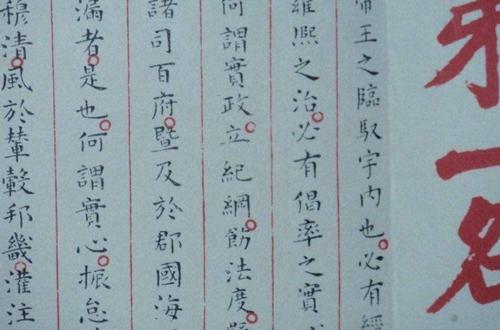 一名
帝王之臨馭宇內也必有經
雍熙之治必有倡率之實
何謂實政立紀綱飭法度
諸司百府暨及於郡國海
漏者是也何謂實心振怠
穆清風於輦轂邦畿灌注